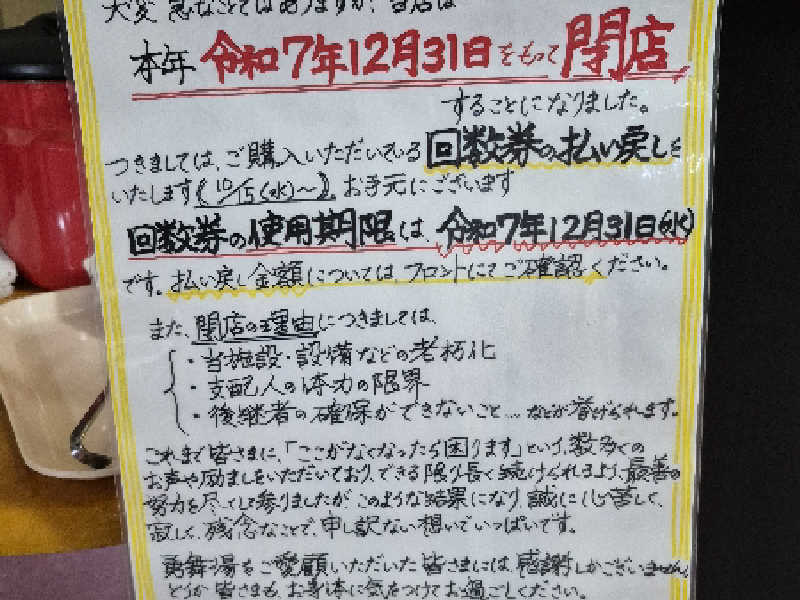 大変 急なことではありますが、当店は
本年 令和7年12月31日をもって 閉店
することになりました。
つきましては、ご購入いただいている 回数券の払い戻しを
いたします(10/15(水)〜)。お手元にございます
回数券の使用期限は、令和7年12月31日(水)
です。払い戻し金額については、フロントにてご確認ください。
また、閉店の理由につきましては、
・当施設・設備などの老朽化
・支配人の体力の限界
・後継者の確保ができないこと… などが挙げられます。
これまで皆さまに、「ここがなくなったら困ります」という、数多くの
お声や励ましをいただいており、できる限り長く続けられるよう、最善の
努力を尽くして参りましたが、このような結果になり、誠に心苦しく、
寂しく、残念なことで、申し訳ない想いでいっぱいです。
湯をご愛顧いただいた皆さまには、感謝しかございません。
どうか皆さまも、お身体に気をつけてお過ごしください。